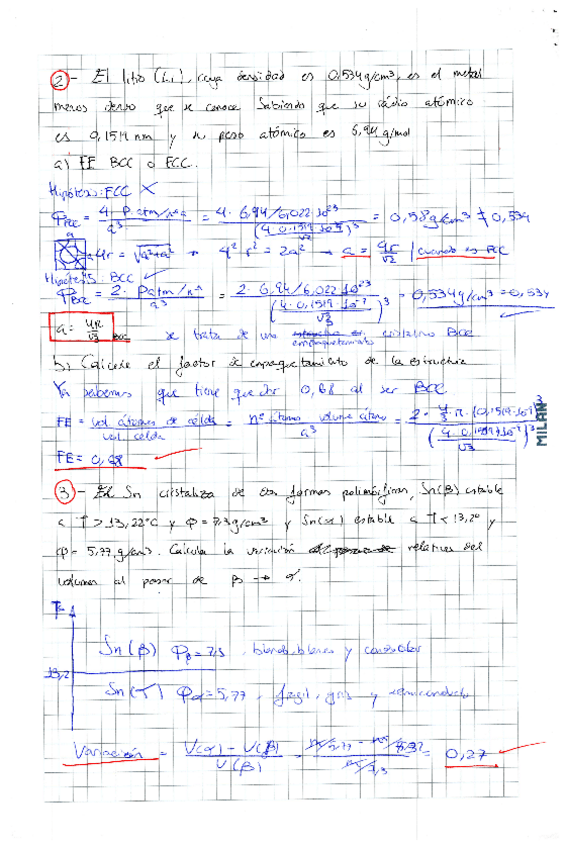 ② - El litio (Li), cuya densidad es 0,534 g/cm³, es el metal
menos denso que se conoce. Sabiendo que su radio atómico
es 0,1519 nm y su peso atómico es 6,94 g/mol
a) FE BCC o FCC.
Hipótesis: FCC X
φFCC = 4 · Patm/nºa / a³ = 4 · 6,94/6,022·10²³ / (4·0,1519·10⁻⁷/√2)³ = 0,58 g/cm³ ≠ 0,534
4r = √a²+a² → 4²r² = 2a² → a = 4r/√2 | cuando es FCC
Hipótesis: BCC ✓
φBCC = 2 · Patm/nºa / a³ = 2 · 6,94/6,022·10²³ / (4·0,1519·10⁻⁷/√3)³ = 0,534 g/cm³ = 0,534
a = 4R/√3 BCC se trata de un cristalino BCC
empaquetamiento
b) Calcule el factor de empaquetamiento de la estructura
Ya sabemos que tiene que dar 0,68 al ser BCC
FE = vol átomos de celda / vol. celda = nº átomos · volumen átomo / a³ = 2 · 4/3 π · (0,1519·10⁻⁷)³ / (4·0,1519·10⁻⁷/√3)³
MILAN
FE = 0,68
③ - El Sn cristaliza de dos formas polimórficas, Sn(β) estable
a T > 13,22°C y φ = 7,3 g/cm³ y Sn(α) estable a T < 13,2° y
φ = 5,77 g/cm³. Calcula la variación relativa del
volumen al pasar de β → α.
T
Sn (β) φβ = 7,3 , blando, blanco y conductor
13,2
φα = 5,77 , frágil, gris y semiconductor
Variación = V(α) - V(β) / V(β) = 0,27